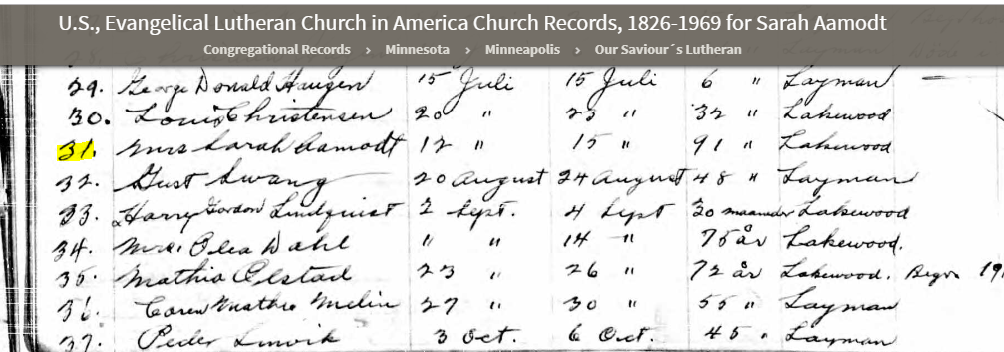 U.S., Evangelical Lutheran Church in America Church Records, 1826-1969 for Sarah Aamodt
Congregational Records › Minnesota › Minneapolis › Our Saviour´s Lutheran
29. George Donald Haugen 15 Juli 15 Juli 6 " Layman
30. Louis Christensen 20 " 23 " 32 " Lakewood
31. Mrs Sarah Aamodt 12 " 15 " 91 " Lakewood
32. Gust Swang 20 August 24 August 48 " Layman
33. Harry Gordon Lindquist 2 Sept. 4 Sept 20 maaneder Lakewood
34. Mrs. Olea Dahl " " 14 " 75 år Lakewood.
35. Mathia Elstad 23 " 26 " 72 år Lakewood. 19
36. Mathie Melin 27 " 30 " 55 " Layman
37. Peder 3 Oct. 6 Oct. 45 " Layman